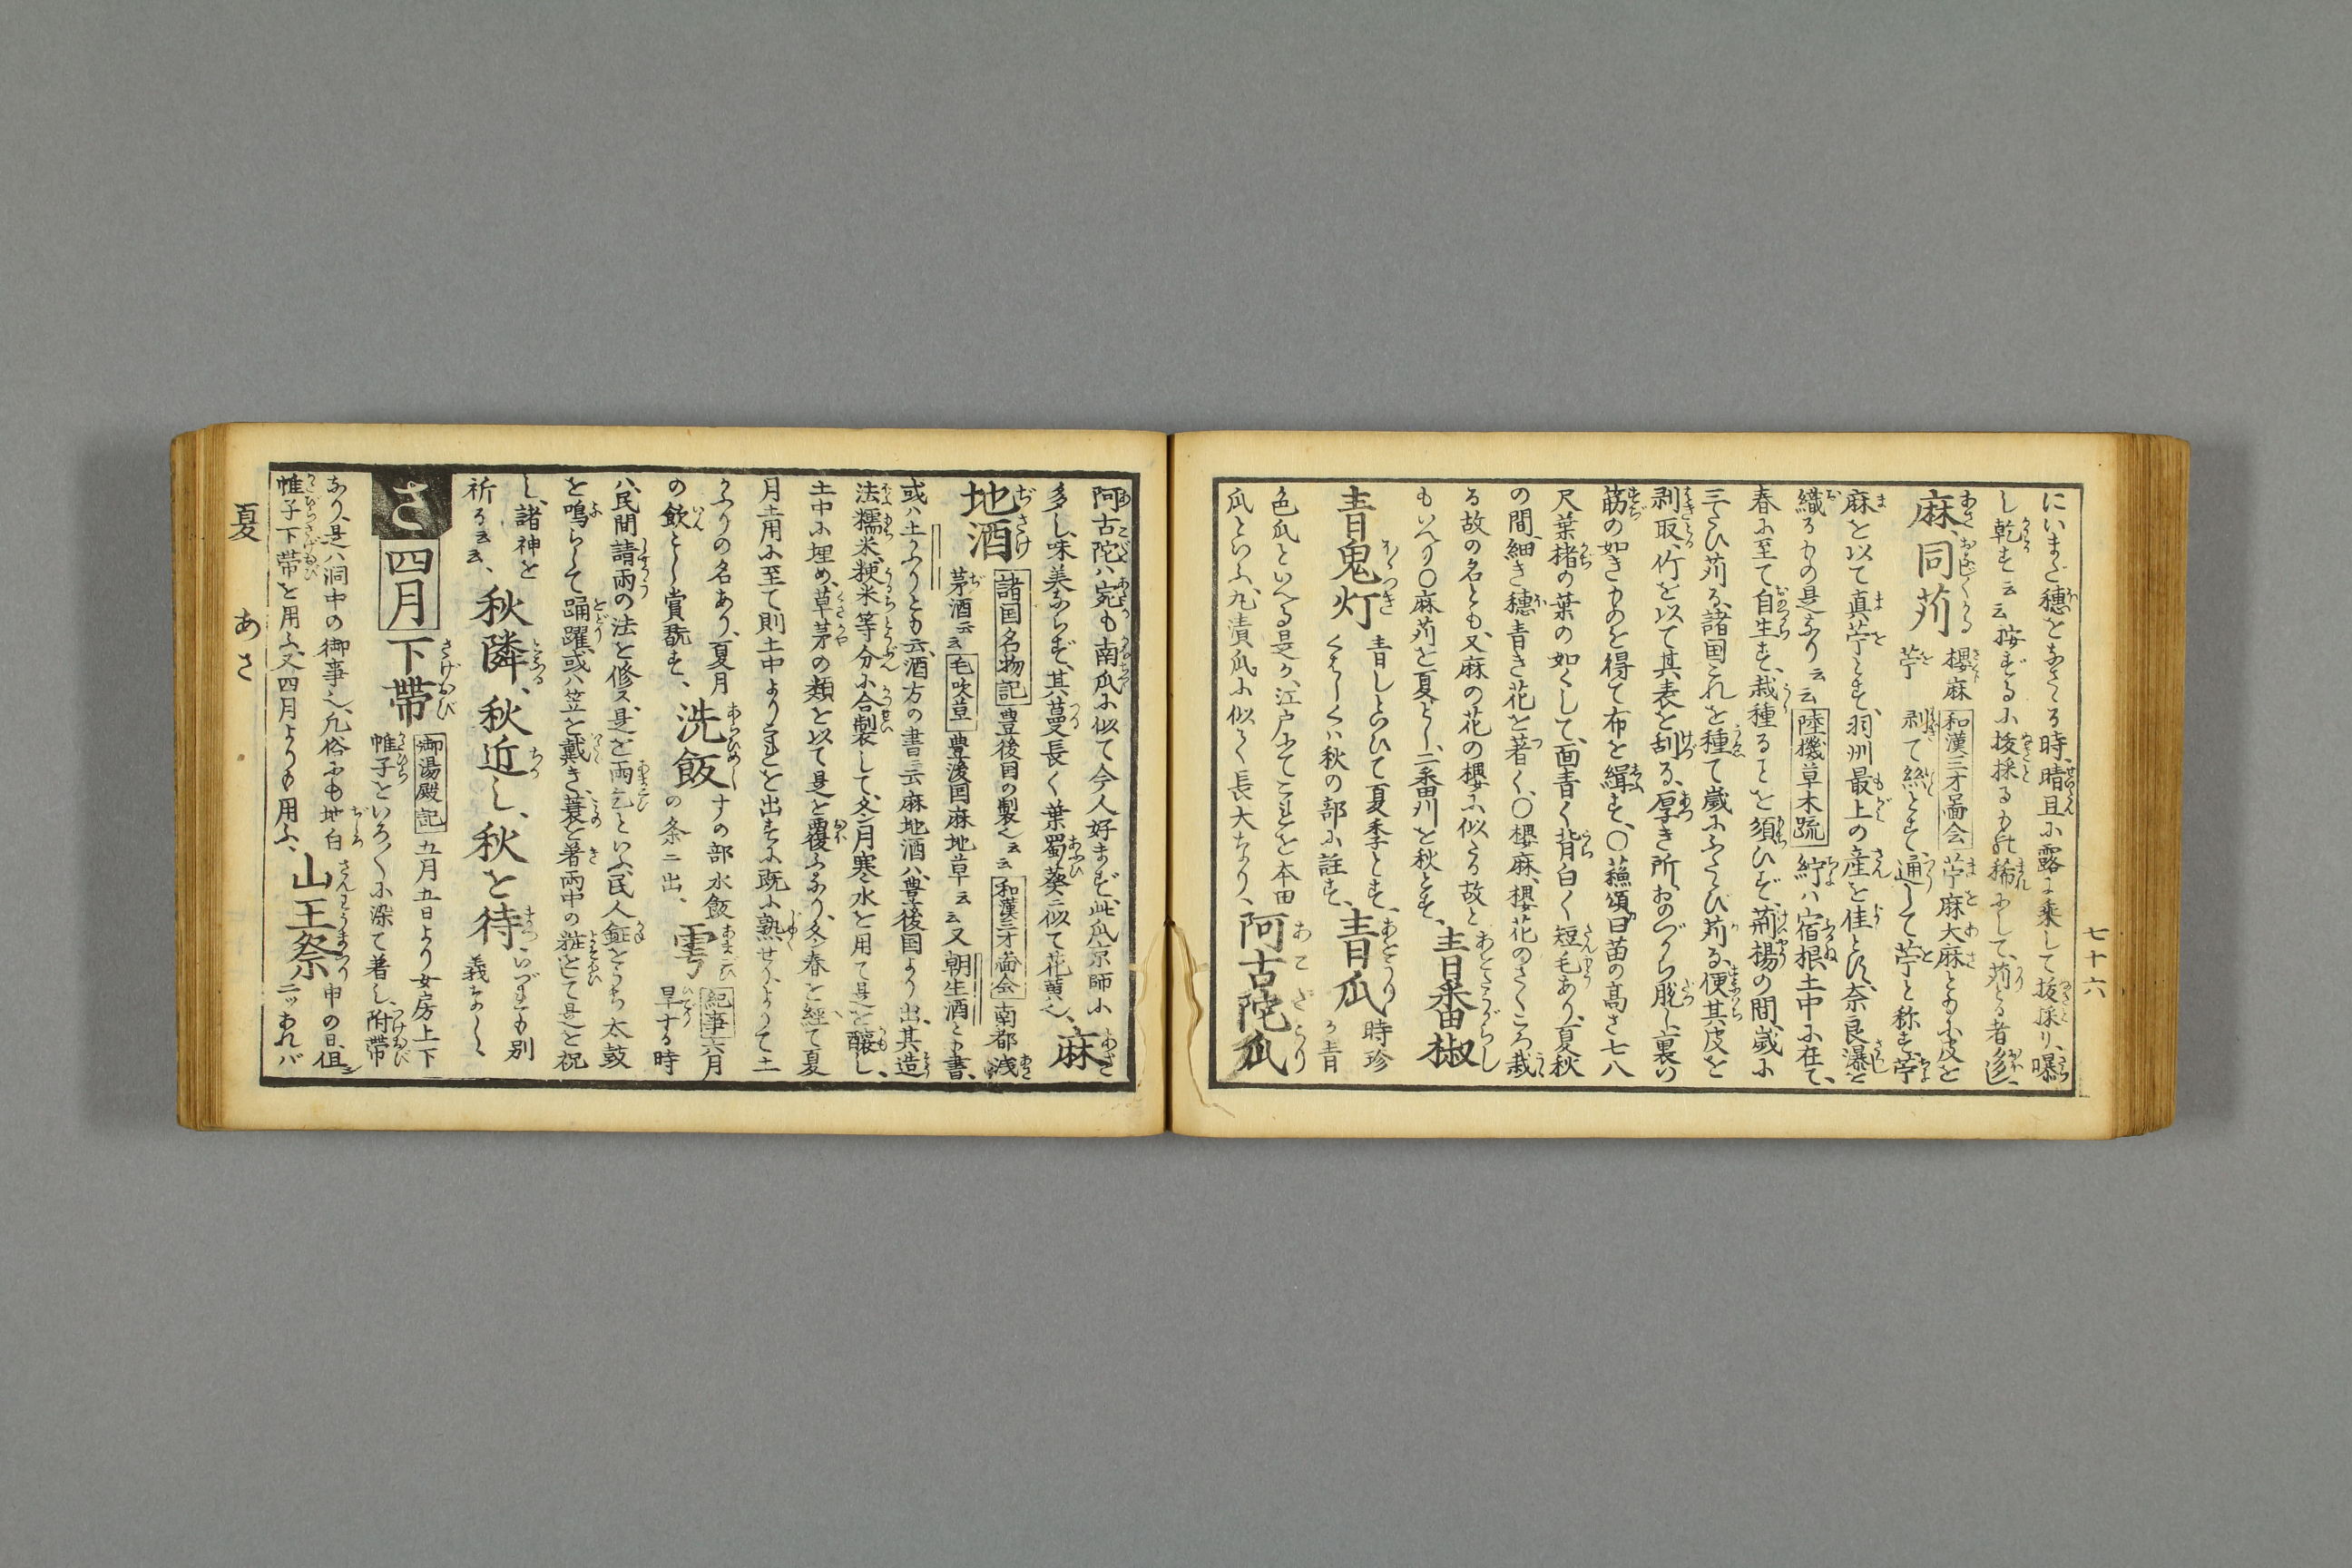 七十六
にいまだ穂をなさゞる時、晴旦に露に乗して抜採り、曝
し乾す云云按ずるに抜採るもの稀にして、苅とる者多し、
麻、同苅 櫻麻 和漢三才啚会 苧麻大麻ともに皮を
苧 剥て絲とす、通して苧と称す、苧
麻を以て真苧とす、羽州最上の産を佳とス、奈良瀑を
織るもの是なり云云 陸機草木䟽 紵ハ宿根土中に在て、
春に至て自生す、栽種ることを須ひず、荊楊の間、歳に
三たひ苅る、諸国これを種て歳にふたゝび苅る、便其皮を
剥取、竹を以て其表を刮る、厚き所、おのづから脱し裏の
筋の如きものを得て布を緝す、〇蘓頌曰苗の高さ七八
尺葉楮の葉の如くして、面青く背白く短毛あり、夏秋
の間、細き穗青き花を著く、〇櫻麻、櫻花のさくころ栽
る故の名とも、又麻の花の櫻に似たる故と
もいへり〇麻苅を夏とし、二番刈を秋とす、青番椒
青鬼灯 青しといひて夏季とす、
くはしくハ秋の部に註す、青瓜 時珍
色瓜といへる是か、江戸にてこれを本田
瓜といふ、丸漬瓜に似て長大なり、阿古陀瓜
阿古陀ハ宛も南瓜に似て今人好まず、此瓜京師に
多し、味美ならず、其蔓長く葉蜀葵ニ似て花黄也、麻
地酒 諸国名物記 豊後国の製也云云 和漢三才啚会 南都浅
茅酒云云 毛吹草 豊後国麻地草云云又朝生酒とも書、
或ハ土かふりとも云、酒方の書ニ云麻地酒ハ豊後国より出、其造
法糯米粳米等分に合製して、冬月寒水を用て是を醸し、
土中に埋め、草茅の類を以て是を覆ふなり、冬春を経て夏
月土用に至て則土中よりこれを出すに既に熟せり、よつて土
かふりの名あり、夏月
の飲とし賞翫す、洗飯 ナの部水飯
の条ニ出、雩 紀事 六月
旱する時
ハ民間請雨の法を修ス、是を雨乞といふ、民人鉦をうち太鼓
を鳴らして踊躍、或ハ笠を戴き、蓑を著雨中の粧をして是を祝
し、諸神を
祈る云云、秋隣、秋近し、秋を待 いづれも別
義なし
さ 四月 下帯 御湯殿記 五月五日より女房上下
帷子といろ〳〵に染て著し、附帯
あり、是ハ洞中の御事也、凡俗にも地白
帷子下帯を用ふ、又四月よりも用ふ、山王祭 申の日但シ
二ツあれバ
夏 あさ